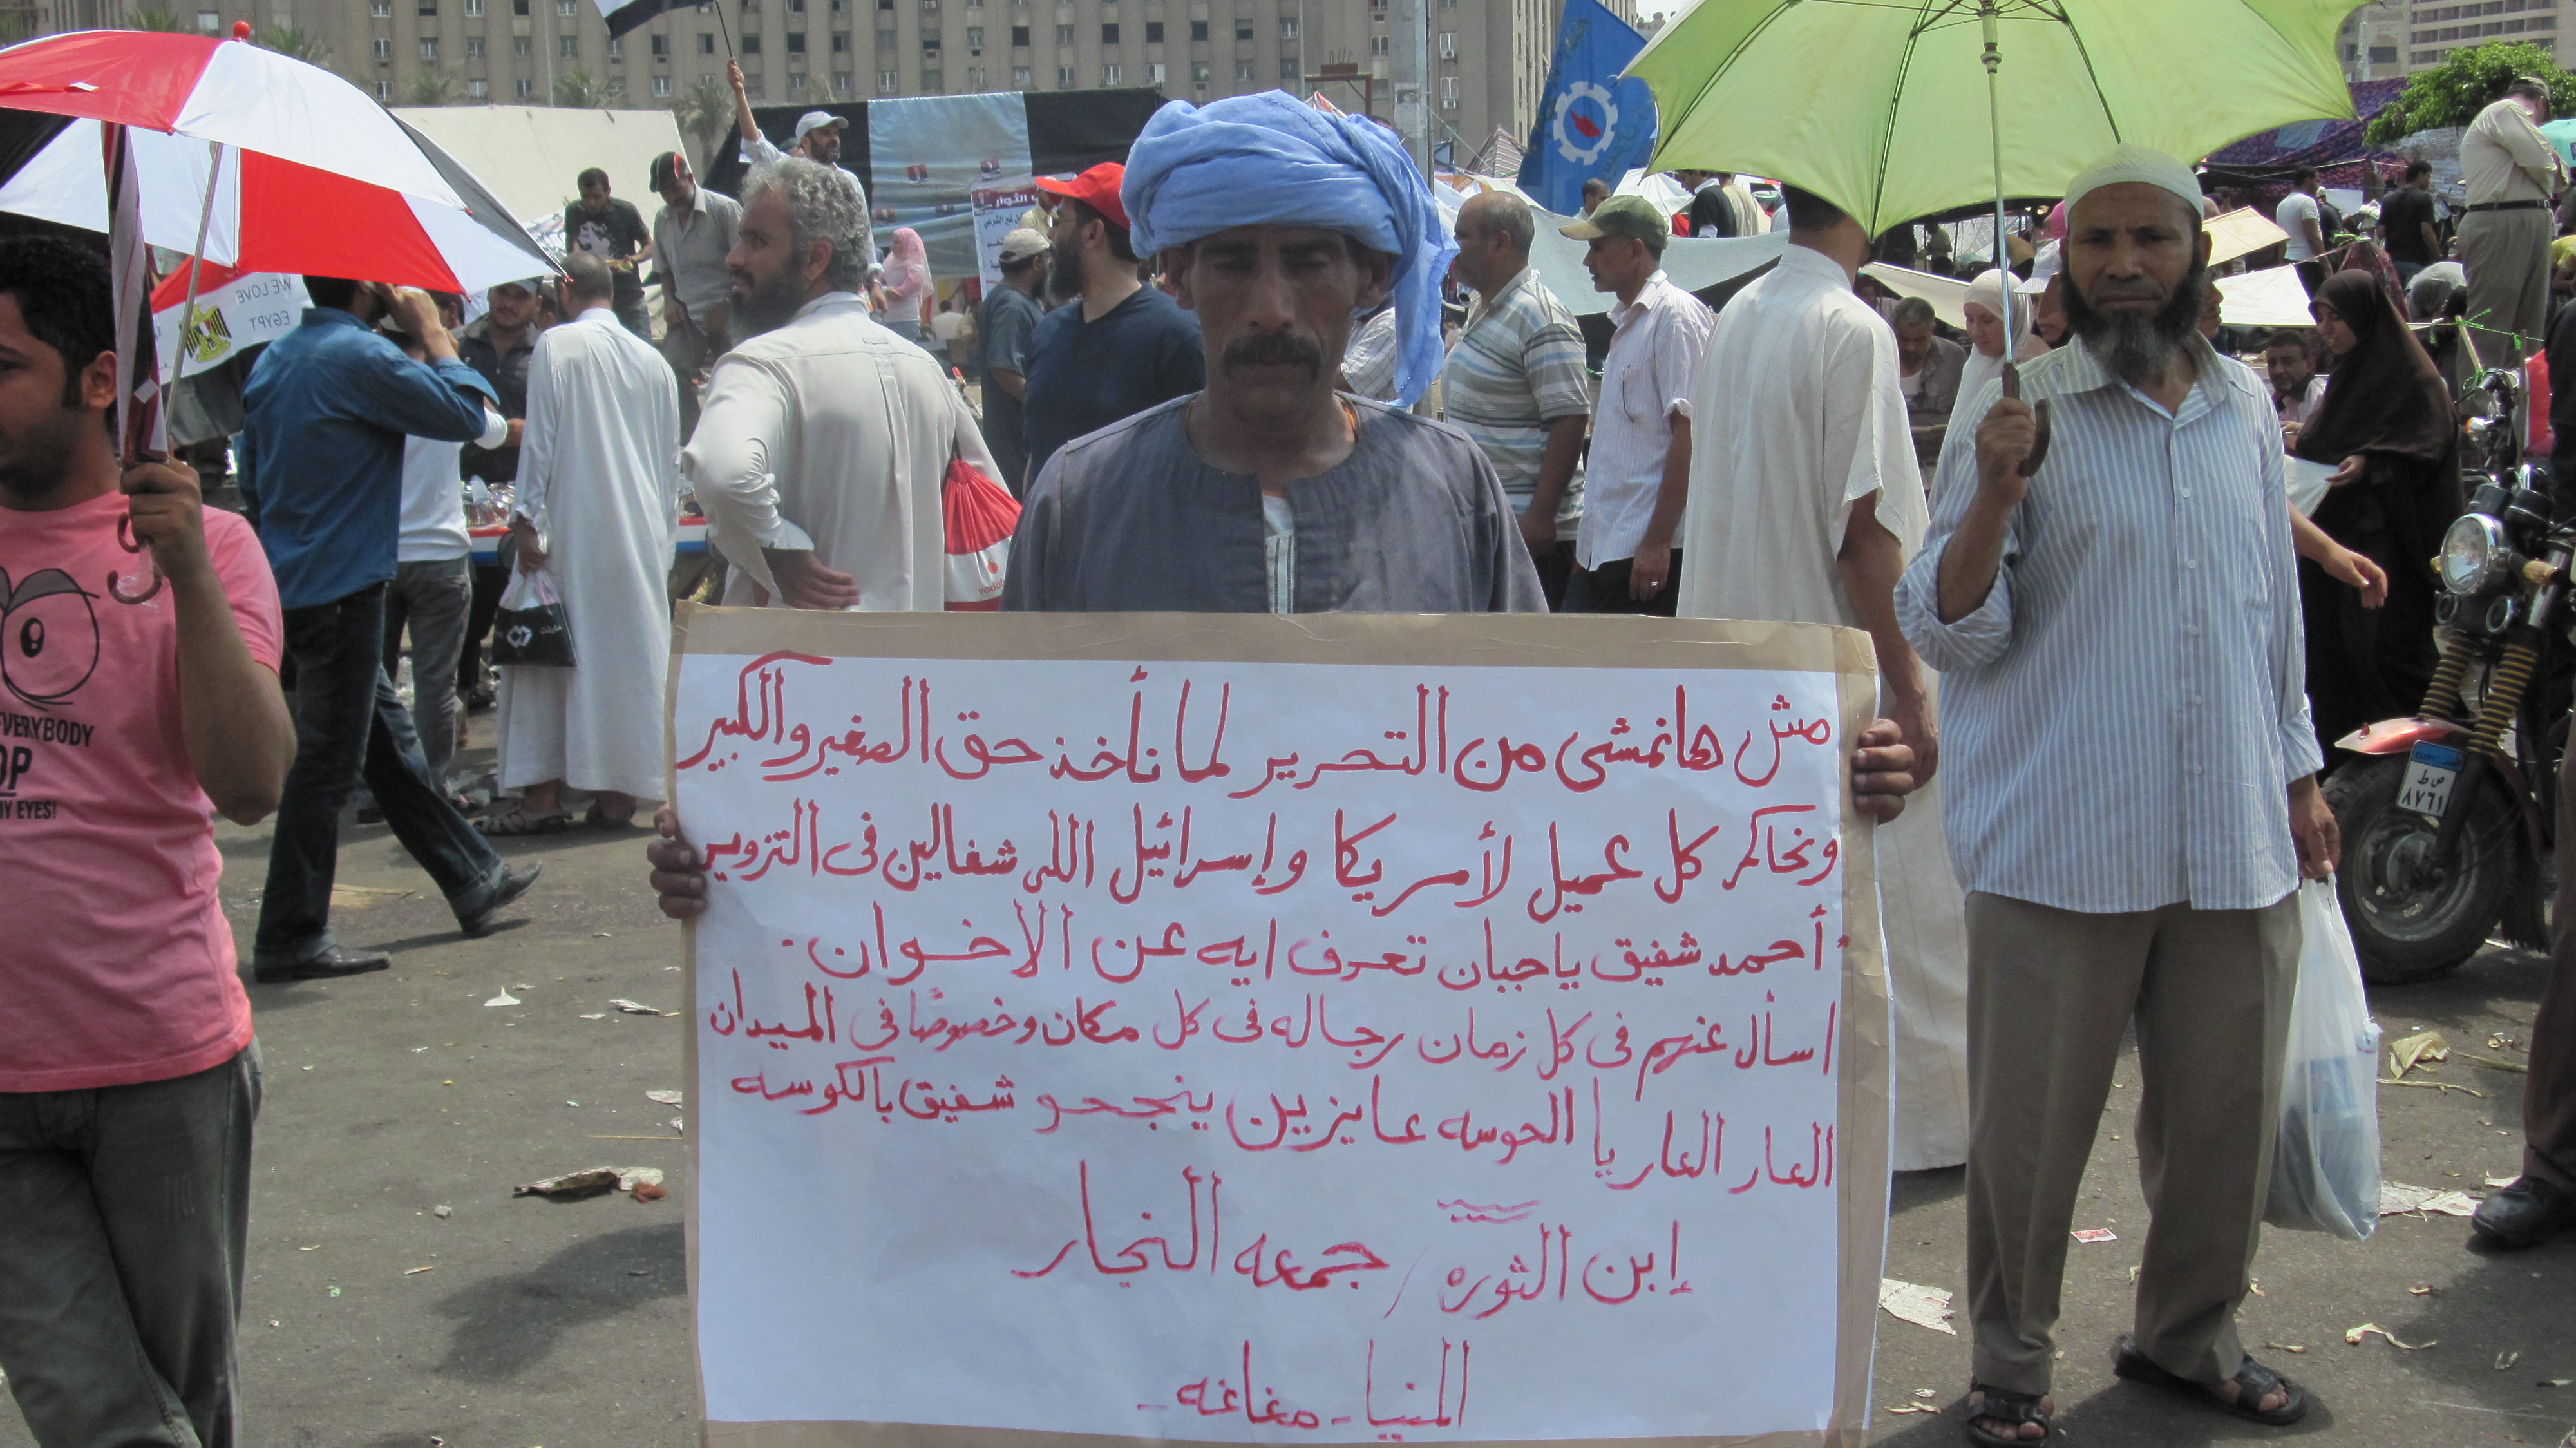 مش هانمشى من التحرير لما نأخذ حق الصغير والكبير
ونحاكم كل عميل لأمريكا وإسرائيل اللى شغالين فى التزوير
أحمد شفيق ياجبان تعرف ايه عن الاخوان
اسأل عنهم فى كل زمان رجاله فى كل مكان وخصوصًا فى الميدان
العار العار يا الحوسه عايزين ينجحو شفيق بالكوسه
إبن الثوره / جمعه النجار
المنيا - مغاغه -
WE LOVE
EGYPT
EVERYBODY
OP
MY EYES!
الثوار
ص ط
٨٧٦١